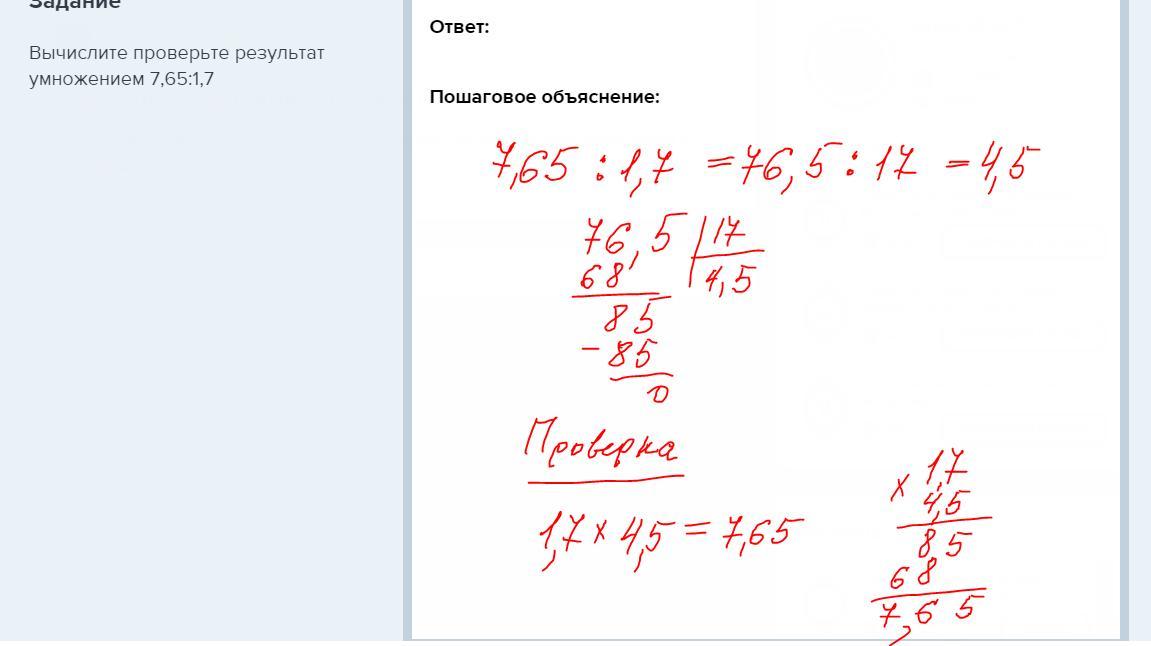 Задание
Вычислите проверьте результат
умножением 7,65:1,7
Ответ:
Пошаговое объяснение:
7,65 : 1,7 = 76,5 : 17 = 4,5
76,5 | 17
68 | 4,5
85
- 85
0
Проверка
1,7 × 4,5 = 7,65
1,7
× 4,5
85
68
7,65